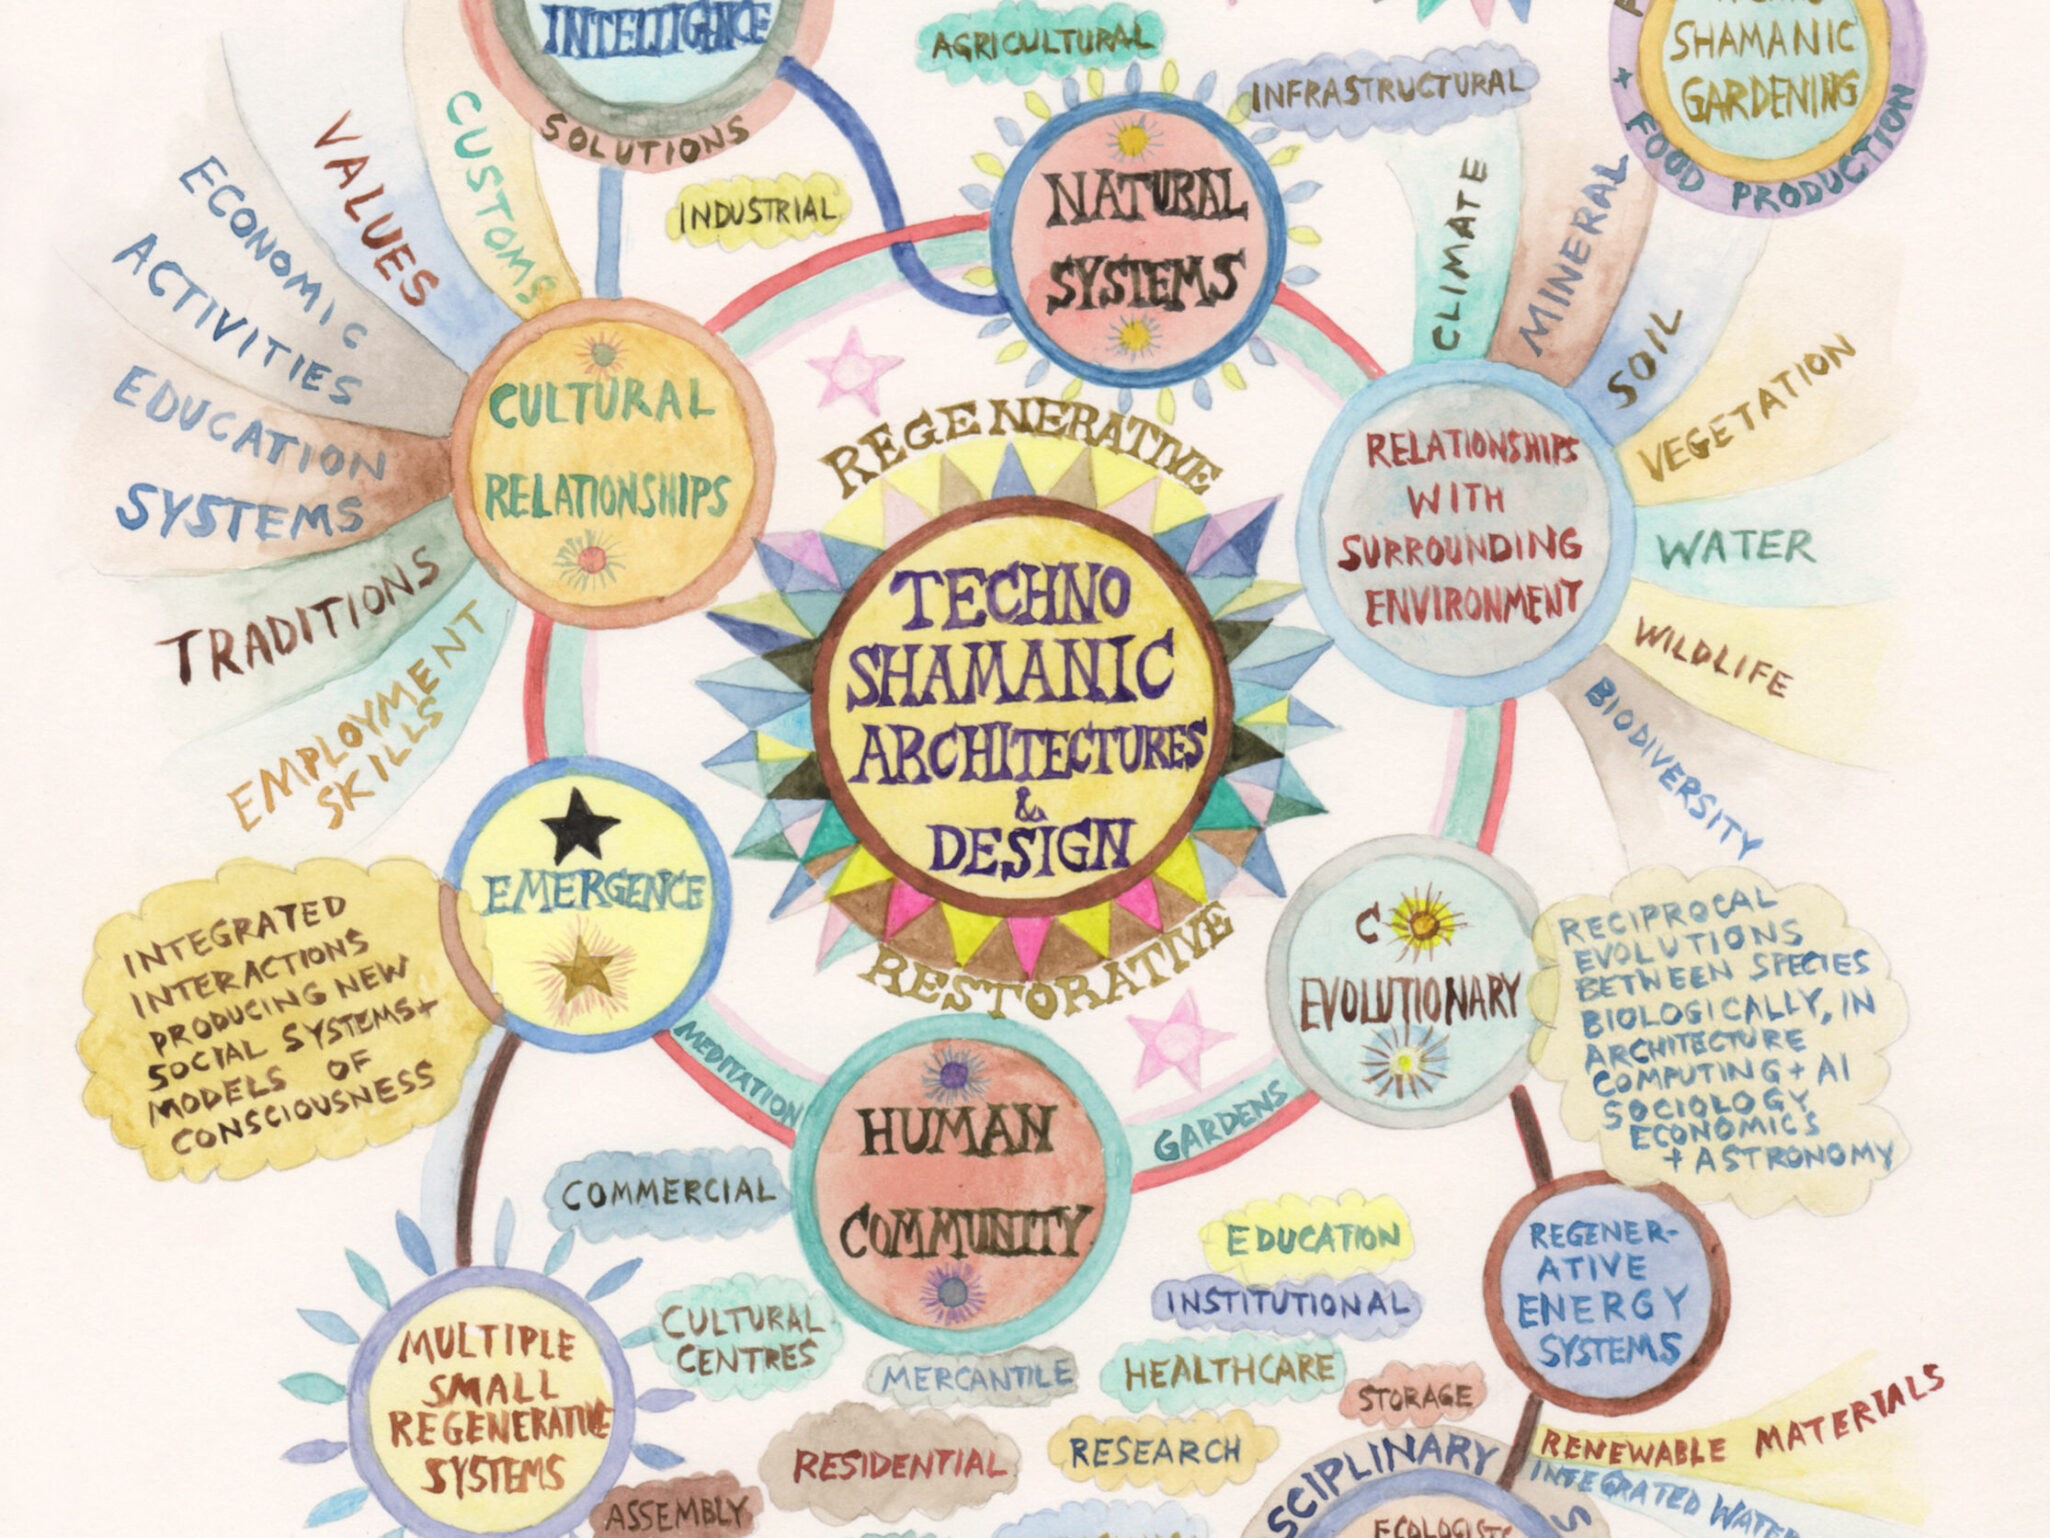 INTELLIGENCE
SOLUTIONS
AGRICULTURAL
INFRASTRUCTURAL
INDUSTRIAL
SHAMANIC
GARDENING
+ FOOD PRODUCTION
NATURAL
SYSTEMS
CUSTOMS
VALUES
ECONOMIC
ACTIVITIES
EDUCATION
SYSTEMS
TRADITIONS
EMPLOYMENT
SKILLS
CULTURAL
RELATIONSHIPS
CLIMATE
MINERAL
SOIL
VEGETATION
WATER
WILDLIFE
BIODIVERSITY
RELATIONSHIPS
WITH
SURROUNDING
ENVIRONMENT
REGENERATIVE
TECHNO
SHAMANIC
ARCHITECTURES
&
DESIGN
RESTORATIVE
EMERGENCE
INTEGRATED
INTERACTIONS
PRODUCING NEW
SOCIAL SYSTEMS+
MODELS OF
CONSCIOUSNESS
C
EVOLUTIONARY
RECIPROCAL
EVOLUTIONS
BETWEEN SPECIES
BIOLOGICALLY, IN
ARCHITECTURE
COMPUTING + AI
SOCIOLOGY
ECONOMICS
+ ASTRONOMY
MEDITATION
GARDENS
HUMAN
COMMUNITY
COMMERCIAL
EDUCATION
INSTITUTIONAL
CULTURAL
CENTRES
MERCANTILE
HEALTHCARE
STORAGE
RESIDENTIAL
RESEARCH
ASSEMBLY
MULTIPLE
SMALL
REGENERATIVE
SYSTEMS
REGENER-
ATIVE
ENERGY
SYSTEMS
RENEWABLE MATERIALS
INTEGRATED WATER
SCIPLINARY
ECOLOGISTS